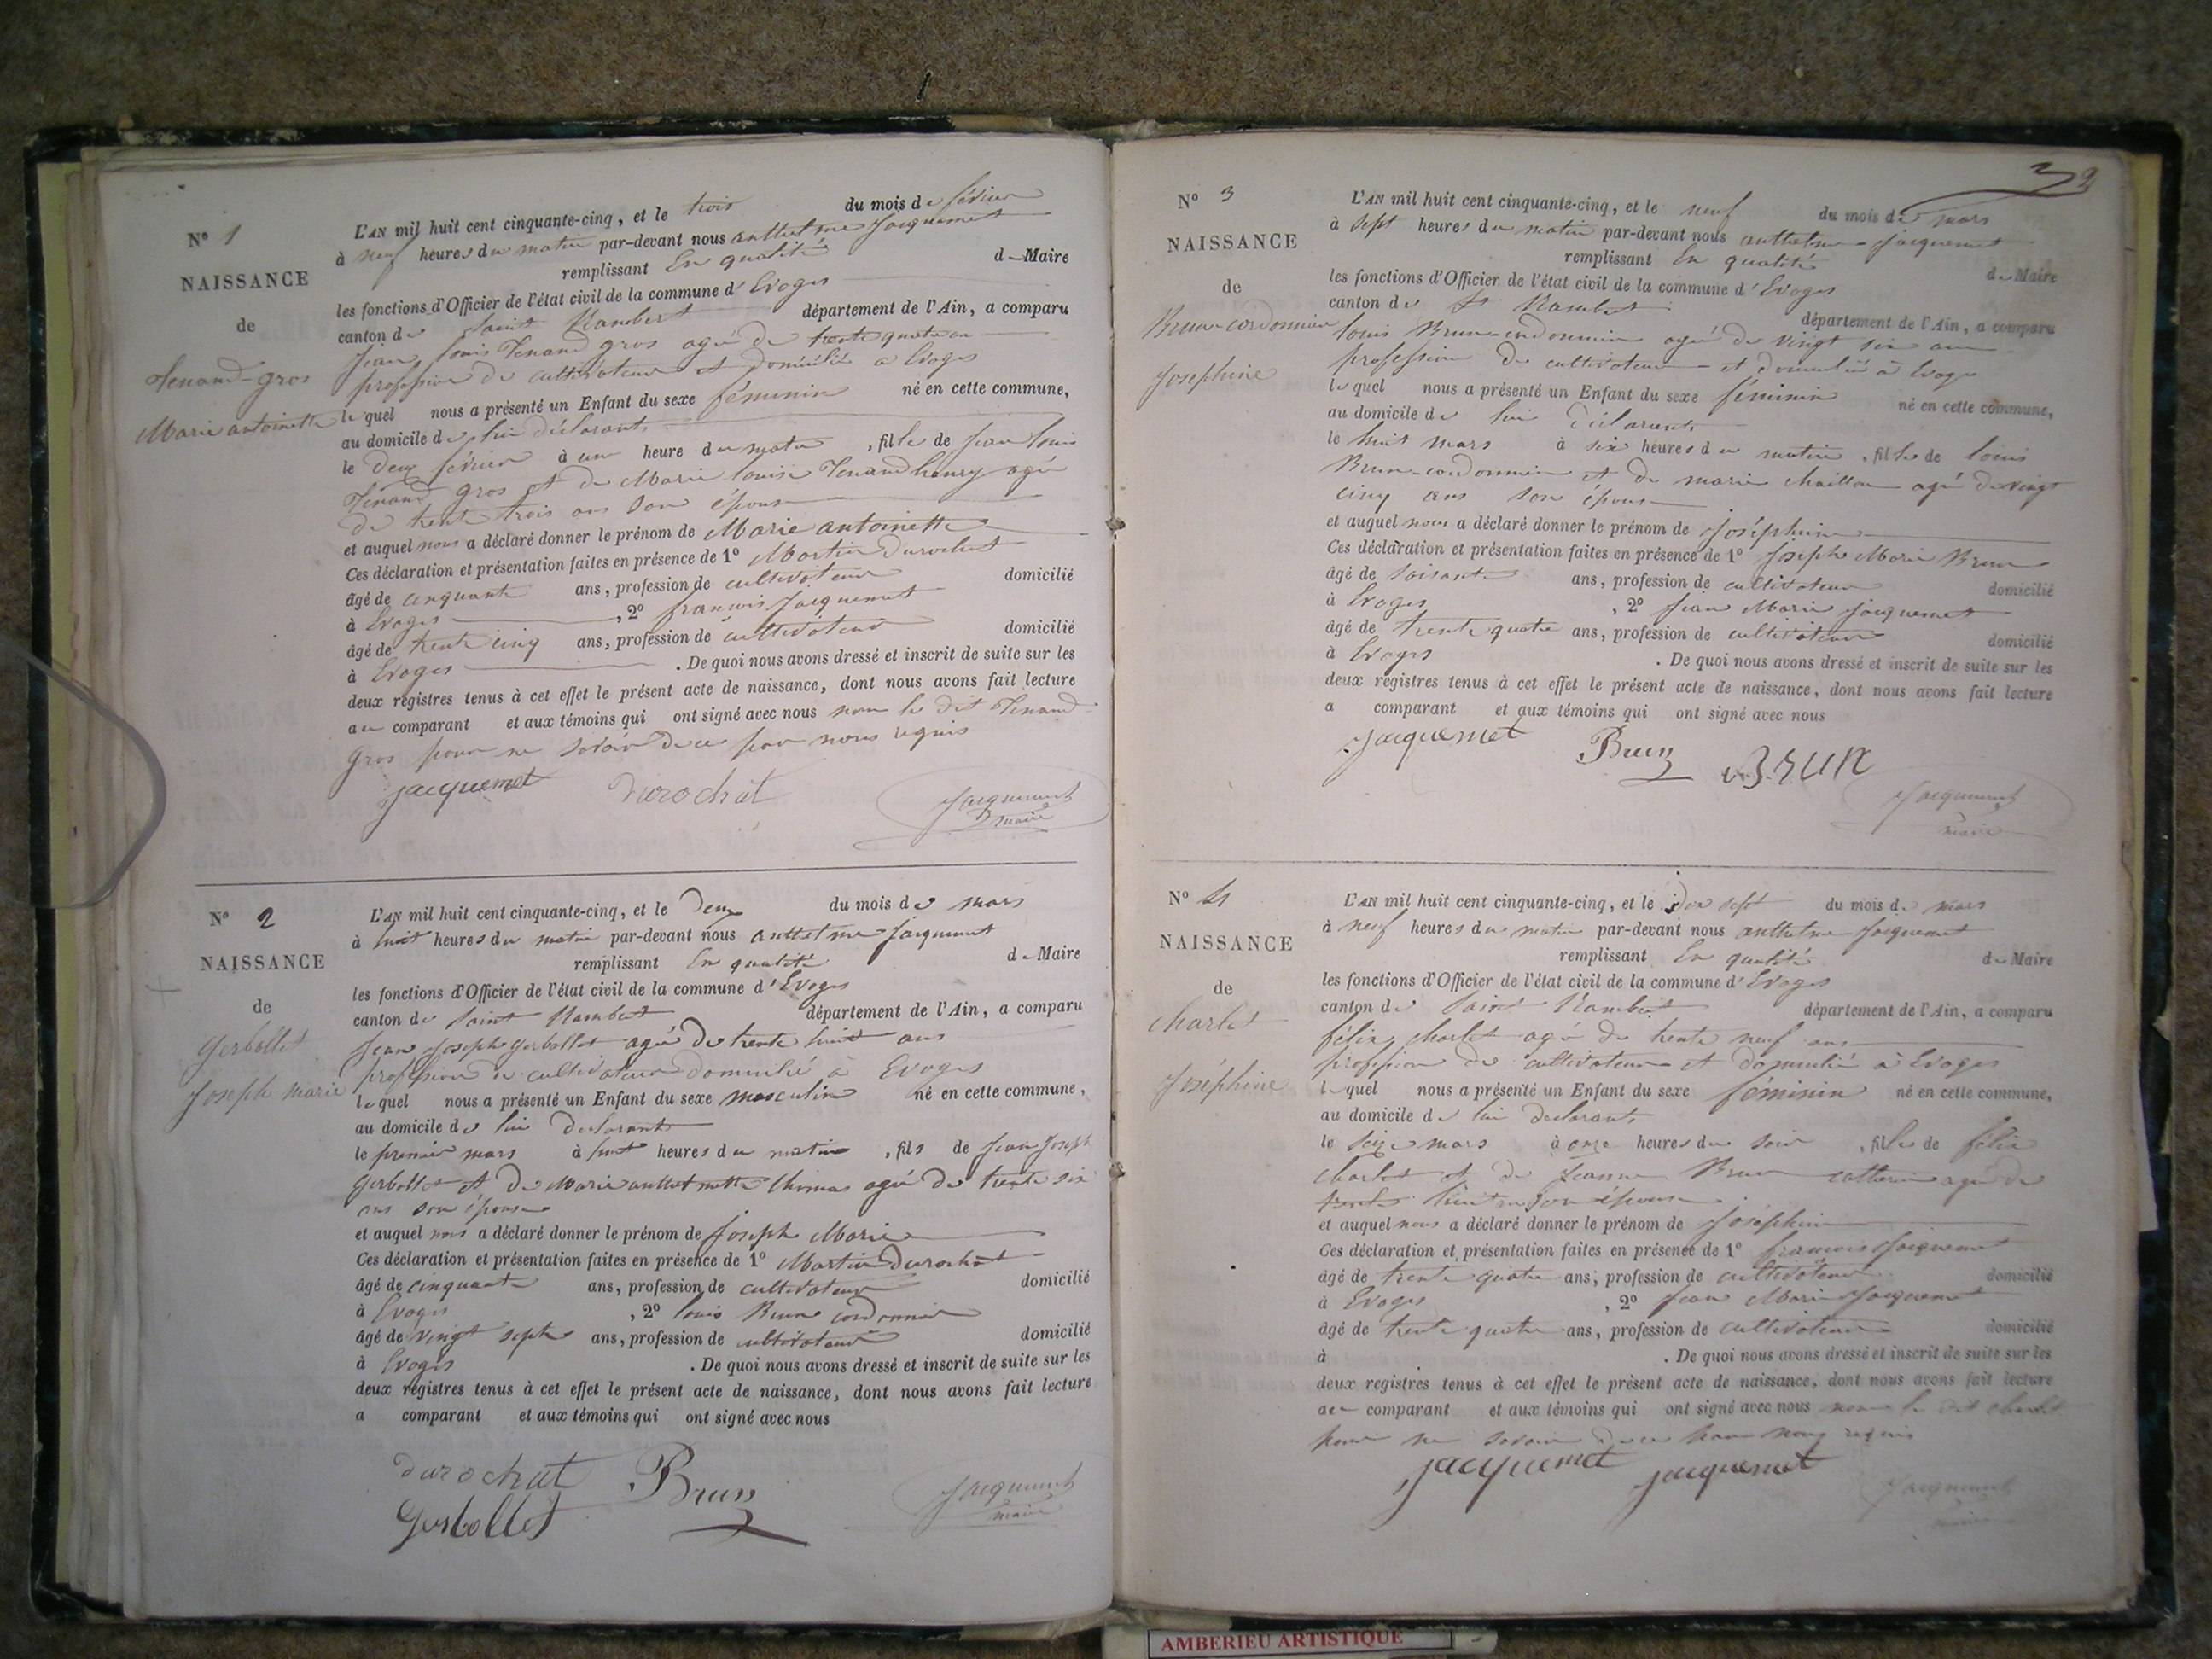 N° 1
NAISSANCE
de
Tenand-gros
Marie antoinette
L'AN mil huit cent cinquante-cinq, et le trois du mois de février
à neuf heures du matin par-devant nous anthelme Jacquemet
remplissant En qualité de Maire
les fonctions d'Officier de l'état civil de la commune d'Evoges
canton de Saint Rambert département de l'Ain, a comparu
Jean louis Tenand gros agé de trente quatre an
profession de cultivateur et domicilié a Evoges
le quel nous a présenté un Enfant du sexe féminin né en cette commune,
au domicile de lui déclarant
le deux février à une heure du matin, fille de Jean louis
Tenand gros et de Marie louise Tenand henry agée
de trente trois ans son épouse
et auquel nous a déclaré donner le prénom de Marie antoinette
Ces déclaration et présentation faites en présence de 1° Martin Durochat
âgé de cinquante ans, profession de cultivateur domicilié
à Evoges, 2° francois Jacquemet
âgé de trente cinq ans, profession de cultivateur domicilié
à Evoges. De quoi nous avons dressé et inscrit de suite sur les
deux registres tenus à cet effet le présent acte de naissance, dont nous avons fait lecture
au comparant et aux témoins qui ont signé avec nous non le dit Tenand
gros pour ne savoir de ce par nous requis
jacquemet durochat Jacquemet
maire
N° 2
NAISSANCE
de
Gerbollet
Joseph marie
L'AN mil huit cent cinquante-cinq, et le deux du mois de mars
à huit heures du matin par-devant nous anthelme Jacquemet
remplissant En qualité de Maire
les fonctions d'Officier de l'état civil de la commune d'Evoges
canton de Saint Rambert département de l'Ain, a comparu
Jean Joseph Gerbollet agé de trente huit ans
profession de cultivateur domicilié à Evoges
le quel nous a présenté un Enfant du sexe masculin né en cette commune,
au domicile de lui declarant
le premier mars à heures du matin, fils de Jean Joseph
Gerbollet et de Marie Thomas agée de trente six
ans son épouse
et auquel nous a déclaré donner le prénom de Joseph Marie
Ces déclaration et présentation faites en présence de 1° Martin Durochat
âgé de cinquante ans, profession de cultivateur domicilié
à Evoges, 2° louis Brun cordonnier
âgé de vingt sept ans, profession de cultivateur domicilié
à Evoges. De quoi nous avons dressé et inscrit de suite sur les
deux registres tenus à cet effet le présent acte de naissance, dont nous avons fait lecture
a comparant et aux témoins qui ont signé avec nous
durochat Brun Jacquemet
Gerbollet maire
3
N° 3
NAISSANCE
de
Brun-cordonnier
Josephine
L'AN mil huit cent cinquante-cinq, et le neuf du mois de mars
à sept heures du matin par-devant nous anthelme Jacquemet
remplissant En qualité de Maire
les fonctions d'Officier de l'état civil de la commune d'Evoges
canton de St Rambert département de l'Ain, a comparu
louis Brun-cordonnier agé de vingt six ans
profession de cultivateur et domicilié à Evoges
le quel nous a présenté un Enfant du sexe féminin né en cette commune,
au domicile de lui déclarant
le huit mars à six heures du matin, fille de louis
Brun-cordonnier et de marie chaillon agée de vingt
cinq ans son épouse
et auquel nous a déclaré donner le prénom de Joséphine
Ces déclaration et présentation faites en présence de 1° Joseph Marie Brun
âgé de soisante ans, profession de cultivateur domicilié
à Evoges, 2° Jean Marie Jacquemet
âgé de trente quatre ans, profession de cultivateur domicilié
à Evoges. De quoi nous avons dressé et inscrit de suite sur les
deux registres tenus à cet effet le présent acte de naissance, dont nous avons fait lecture
a comparant et aux témoins qui ont signé avec nous
Jacquemet Brun BRUN
Jacquemet
maire
N° 4
NAISSANCE
de
Charlet
Joséphine
L'AN mil huit cent cinquante-cinq, et le dix sept du mois de mars
à neuf heures du matin par-devant nous anthelme Jacquemet
remplissant En qualité de Maire
les fonctions d'Officier de l'état civil de la commune d'Evoges
canton de Saint Rambert département de l'Ain, a comparu
félix charlet agé de trente neuf ans
profession de cultivateur et domicilié à Evoges
le quel nous a présenté un Enfant du sexe féminin né en cette commune,
au domicile de lui declarant
le seize mars à onze heures du soir, fille de félix
charlet et de Jeanne Brun agée de
trente huit ans son épouse
et auquel nous a déclaré donner le prénom de Joséphine
Ces déclaration et présentation faites en présence de 1° francois Jacquemet
âgé de trente quatre ans, profession de cultivateur domicilié
à Evoges, 2° Jean Marie Jacquemet
âgé de trente quatre ans, profession de cultivateur domicilié
à. De quoi nous avons dressé et inscrit de suite sur les
deux registres tenus à cet effet le présent acte de naissance, dont nous avons fait lecture
au comparant et aux témoins qui ont signé avec nous non le dit charlet
pour ne savoir de ce par nous requis
jacquemet jacquemet Jacquemet
maire
AMBERIEU ARTISTIQUE